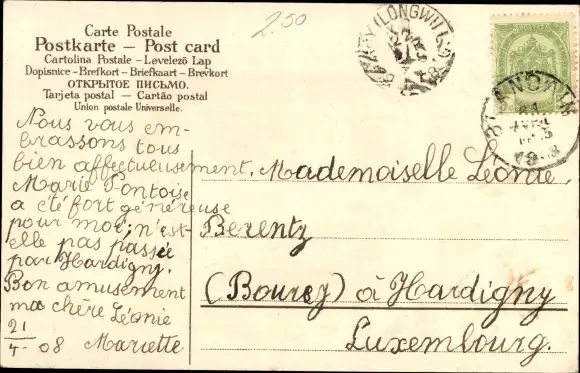 Carte Postale
Postkarte – Post card
Cartolina Postale – Levelezö Lap
Dopisnice – Brefkort – Briefkaart – Brevkort
ОТКРЫТОЕ ПИСЬМО.
Tarjeta postal – Cartão postal
Union postale Universelle.
2.50
(LONGWILLY)
21
AVRIL
Nous vous em-
brassons tous
bien affectueusement.
Marie Pontoise
a été fort généreuse
pour moi; n'est-
elle pas passée
par Hardigny.
Bon amusement
ma chère Léonie
21/4-08 Mariette
Mademoiselle Léonie
Berentz
(Bourcy) à Hardigny
Luxembourg.